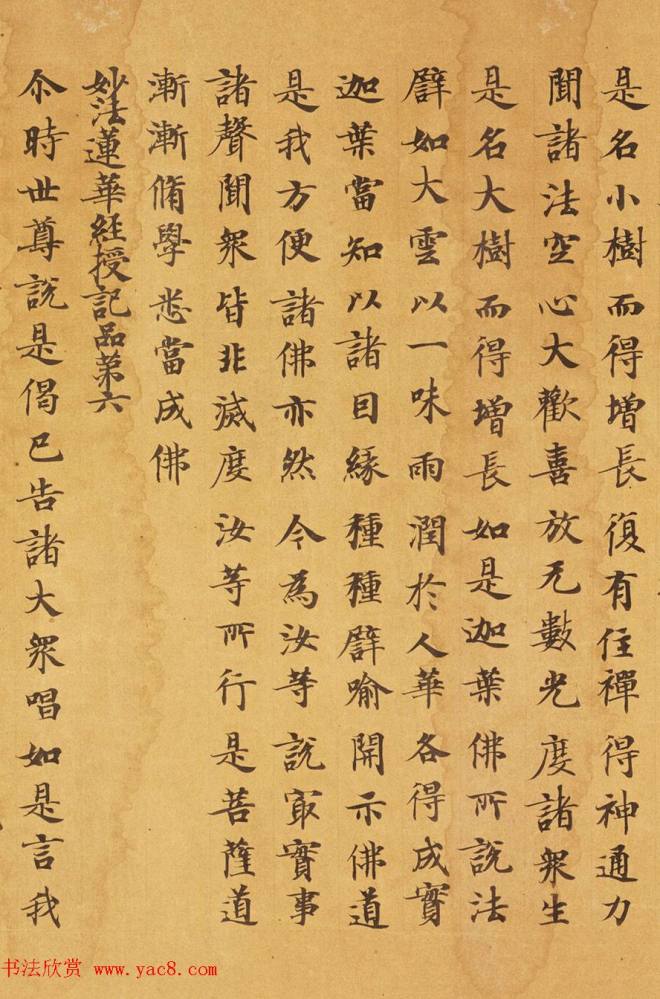 是名小樹而得增長復有住禪得神通力
聞諸法空心大歡喜放无數光度諸眾生
是名大樹而得增長如是迦葉佛所說法
譬如大雲以一味雨潤於人華各得成實
迦葉當知以諸因緣種種譬喻開示佛道
是我方便諸佛亦然今為汝等說冣實事
諸聲聞眾皆非滅度汝等所行是菩薩道
漸漸脩學悉當成佛
妙法蓮華經授記品第六
尒時世尊說是偈已告諸大眾唱如是言我
书法欣赏 www.yac8.com